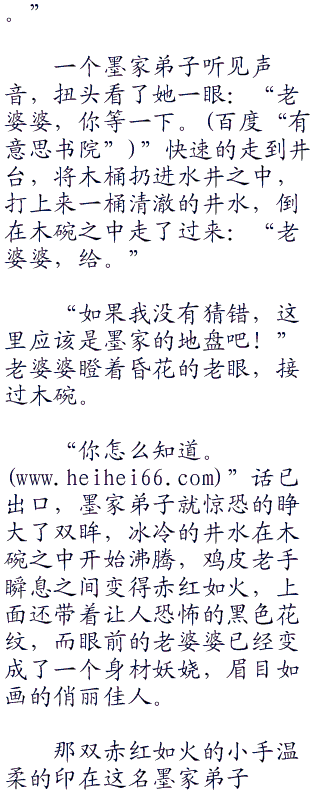 。”
一个墨家弟子听见声
音，扭头看了她一眼：“老
婆婆，你等一下。(百度“有
意思书院”)”快速的走到井
台，将木桶扔进水井之中，
打上来一桶清澈的井水，倒
在木碗之中走了过来：“老
婆婆，给。”
“如果我没有猜错，这
里应该是墨家的地盘吧！”
老婆婆瞪着昏花的老眼，接
过木碗。
“你怎么知道。
(www.heihei66.com)”话已
出口，墨家弟子就惊恐的睁
大了双眸，冰冷的井水在木
碗之中开始沸腾，鸡皮老手
瞬息之间变得赤红如火，上
面还带着让人恐怖的黑色花
纹，而眼前的老婆婆已经变
成了一个身材妖娆，眉目如
画的俏丽佳人。
那双赤红如火的小手温
柔的印在这名墨家弟子